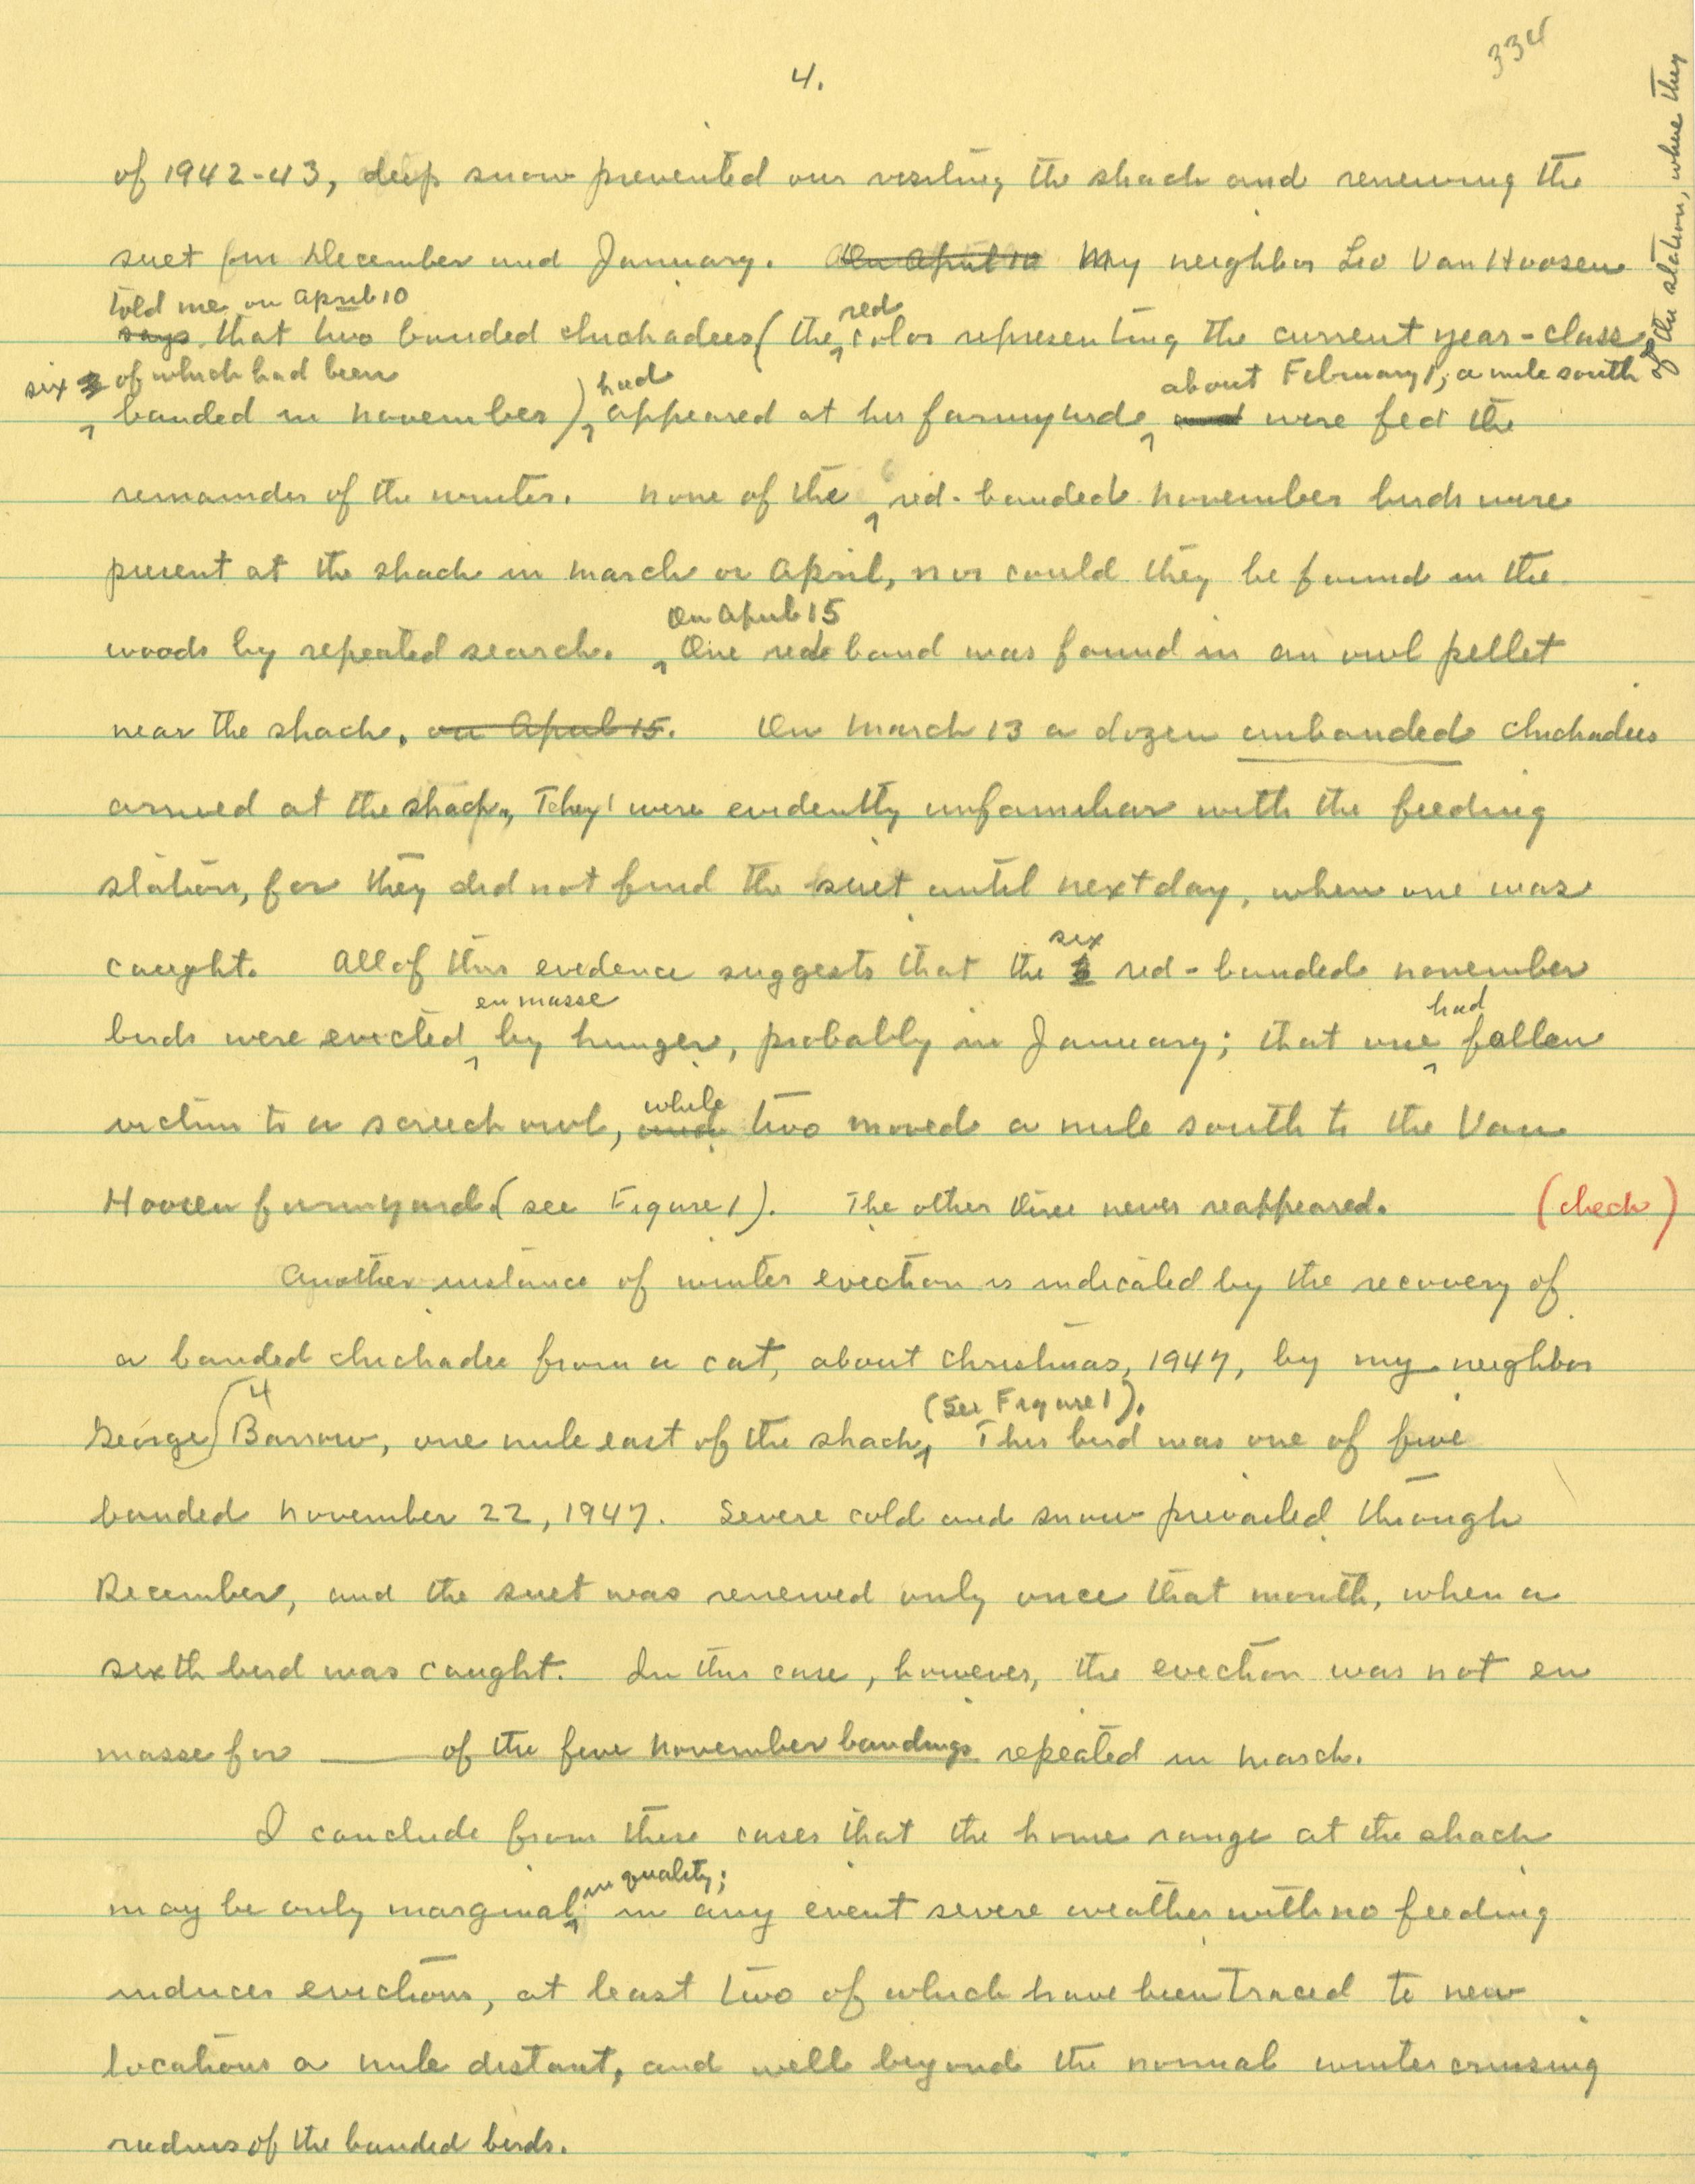 334
4.
of 1942-43, deep snow prevented our visiting the shack and renewing the
suet in December and January. On April 10 My neighbor Leo Van Hoosen
told me on April 10
red
says that two banded chickadees (the color representing the current year-class,
six 3 of which had been
had
about February 1, a mile south
of the station, where they
banded in November) appeared at his farmyard and were fed the
remainder of the winter. None of the 6 red-banded November birds were
present at the shack in March or April, nor could they be found in the
woods by repeated search. One red band was found in an owl pellet
On April 15
near the shack, on April 15. On March 13 a dozen unbanded chickadees
arrived at the shack, They were evidently unfamiliar with the feeding
station, for they did not find the suet until next day, when one was
caught. All of this evidence suggests that the six red-banded November
en masse
had
birds were evicted by hunger, probably in January; that one fallen
while
victim to a screech owl, and two moved a mile south to the Van
Hoosen farmyard (see Figure 1). The other three never reappeared. (check)
Another instance of winter eviction is indicated by the recovery of
a banded chickadee from a cat, about Christmas, 1947, by my neighbor
4
(See Figure 1).
George Barrow, one mile east of the shack, This bird was one of five
banded November 22, 1947. Severe cold and snow prevailed through
December, and the suet was renewed only once that month, when a
sixth bird was caught. In this case, however, the eviction was not en
masse for ____ of the five November bandings repeated in March.
I conclude from these cases that the home range at the shack
in quality;
may be only marginal; in any event severe weather with no feeding
induces evictions, at least two of which have been traced to new
locations a mile distant, and well beyond the normal winter cruising
radius of the banded birds.